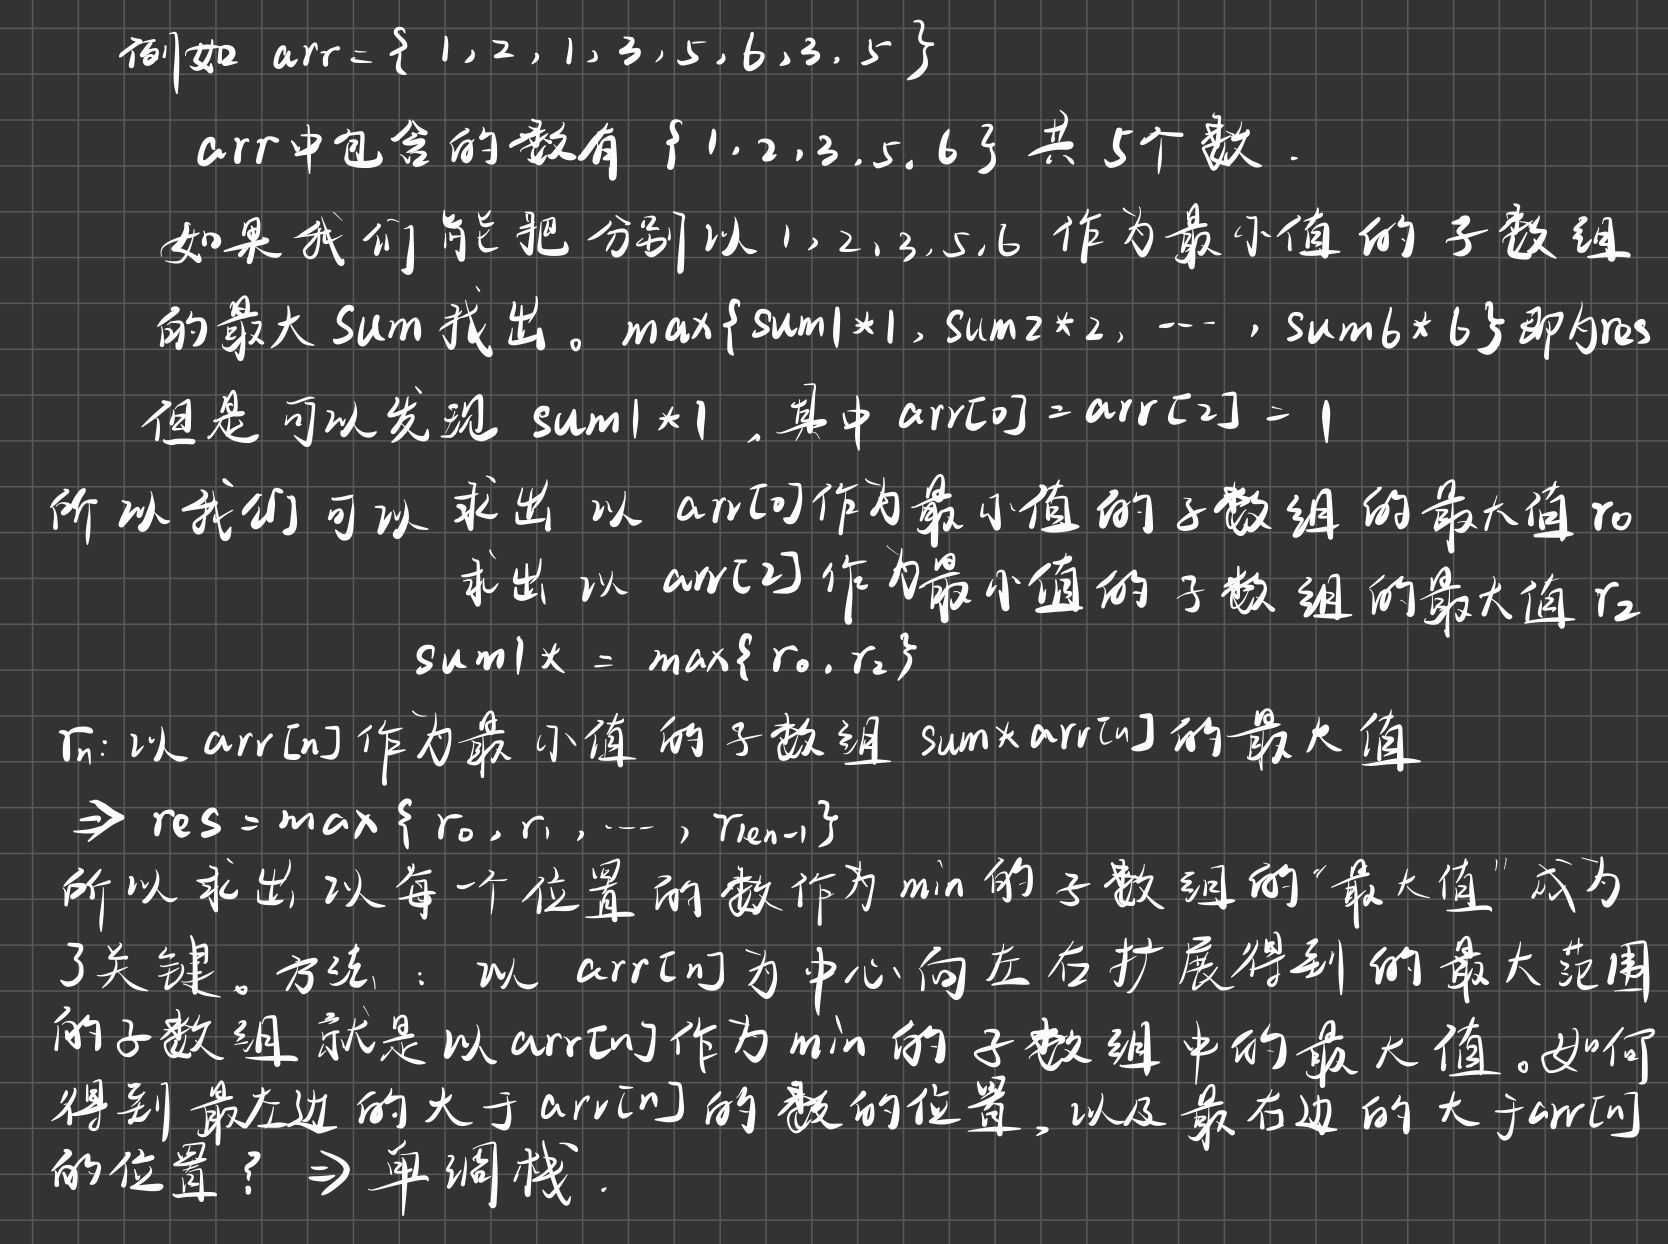 例如 arr={ 1,2,1,3,5,6,3,5}
arr中包含的数有 {1,2,3,5,6} 共 5个数.
如果我们能把分别以1,2,3,5,6 作为最小值的子数组
的最大sum找出。max{sum1*1,sum2*2,…,sum6*6}即为res
但是可以发现 sum1*1,其中 arr[0]=arr[2]=1
所以我们可以求出以 arr[0]作为最小值的子数组的最大值r0
求出以 arr[2]作为最小值的子数组的最大值r2
sum1* = max{r0,r2}
rn:以arr[n]作为最小值的子数组 sum*arr[n]的最大值
⇒ res=max{r0,r1,…,rlen-1}
所以求出以每一个位置的数作为min的子数组的“最大值”成为
了关键。方法:以 arr[n]为中心向左右扩展得到的最大范围
的子数组就是以arr[n]作为min的子数组中的最大值。如何
得到最左边的大于arr[n]的数的位置,以及最右边的大于arr[n]
的位置?⇒单调栈.